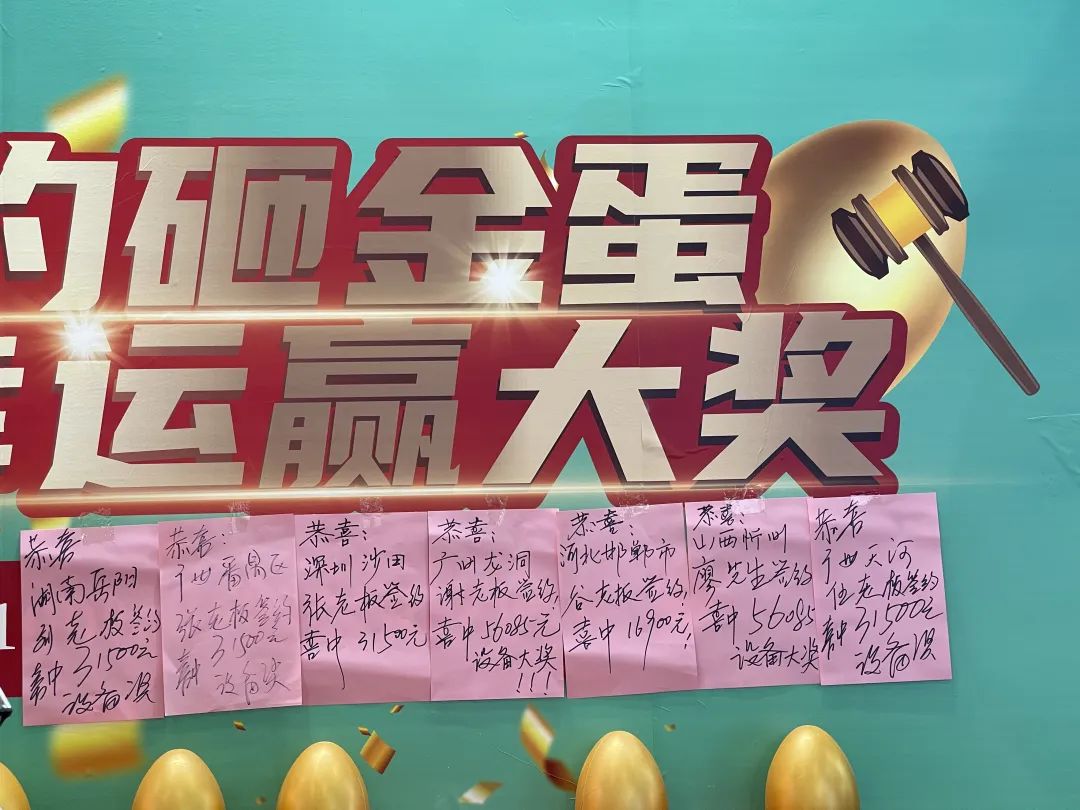 约砸金蛋
幸运赢大奖
1
恭喜
湖南岳阳
刘老板签约
喜中31500元
设备奖
恭喜:
广州番禺区
张老板签约
31500元
喜中
设备奖
恭喜:
深圳沙田
张老板签约
喜中31500元
恭喜:
广州龙洞
谢老板签约,
喜中56085元
设备大奖
!!!
恭喜:
河北邯郸市
谷老板签约,
喜中16900元!
恭喜:
山西忻州
廖先生签约
喜中56085
设备大奖
恭喜
广州天河
伍老板签约
喜中31500元
设备奖